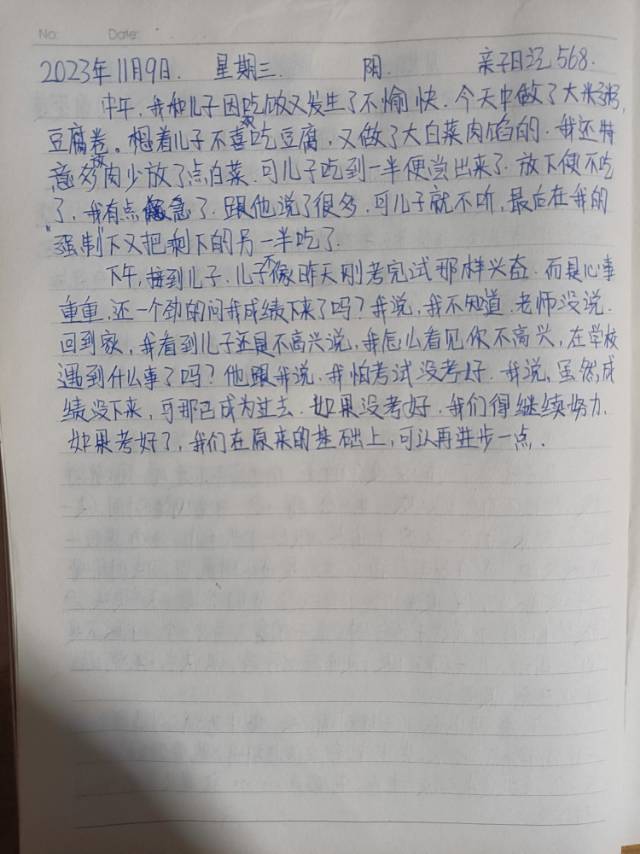 No: Date:
2023年11月9日. 星期三. 阴. 亲子日记568.
中午,我和儿子因吃饭又发生了不愉快.今天中做了大米粥,
豆腐卷。想着儿子不喜欢吃豆腐,又做了大白菜肉馅的.我还特
意多放肉少放了点白菜.可儿子吃到一半便尝出来了.放下便不吃
了,我有点急了.跟他说了很多,可儿子就不听,最后在我的
"强制"下又把剩下的另一半吃了.
下午,接到儿子.儿子不像昨天刚考完试那样兴奋.而是心事
重重,还一个劲的问我成绩下来了吗?我说,我不知道.老师没说.
回到家,我看到儿子还是不高兴说,我怎么看见你不高兴,在学校
遇到什么事了吗?他跟我说.我怕考试没考好.我说,虽然成
绩没下来,可那已成为过去.如果没考好.我们得继续努力.
如果考好了,我们在原来的基础上,可以再进步一点.